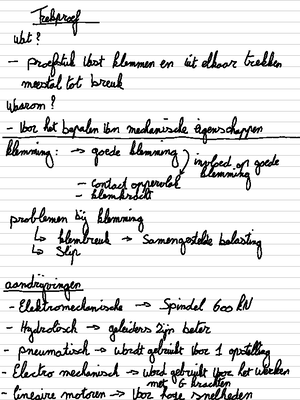 Trekproef
Wat?
- proefstuk vast klemmen en uit elkaar trekken
meestal tot breuk
Waarom?
- Voor het bepalen van mechanische eigenschappen
klemming: → goede klemming
invloed op goede
klemming
- contact oppervlak
- klemkracht
problemen bij klemming
↳ klembreuk → Samengestelde belasting
↳ Slip
aandrijvingen
- Elektromechanische → Spindel 600 kN
- Hydrolisch → geleiders zijn beter
- pneumatisch → wordt gebruikt voor 1 opstelling
- Electro mechanisch → word gebruikt voor het werken
met G krachten
- lineaire motoren → Voor hoge snelheden